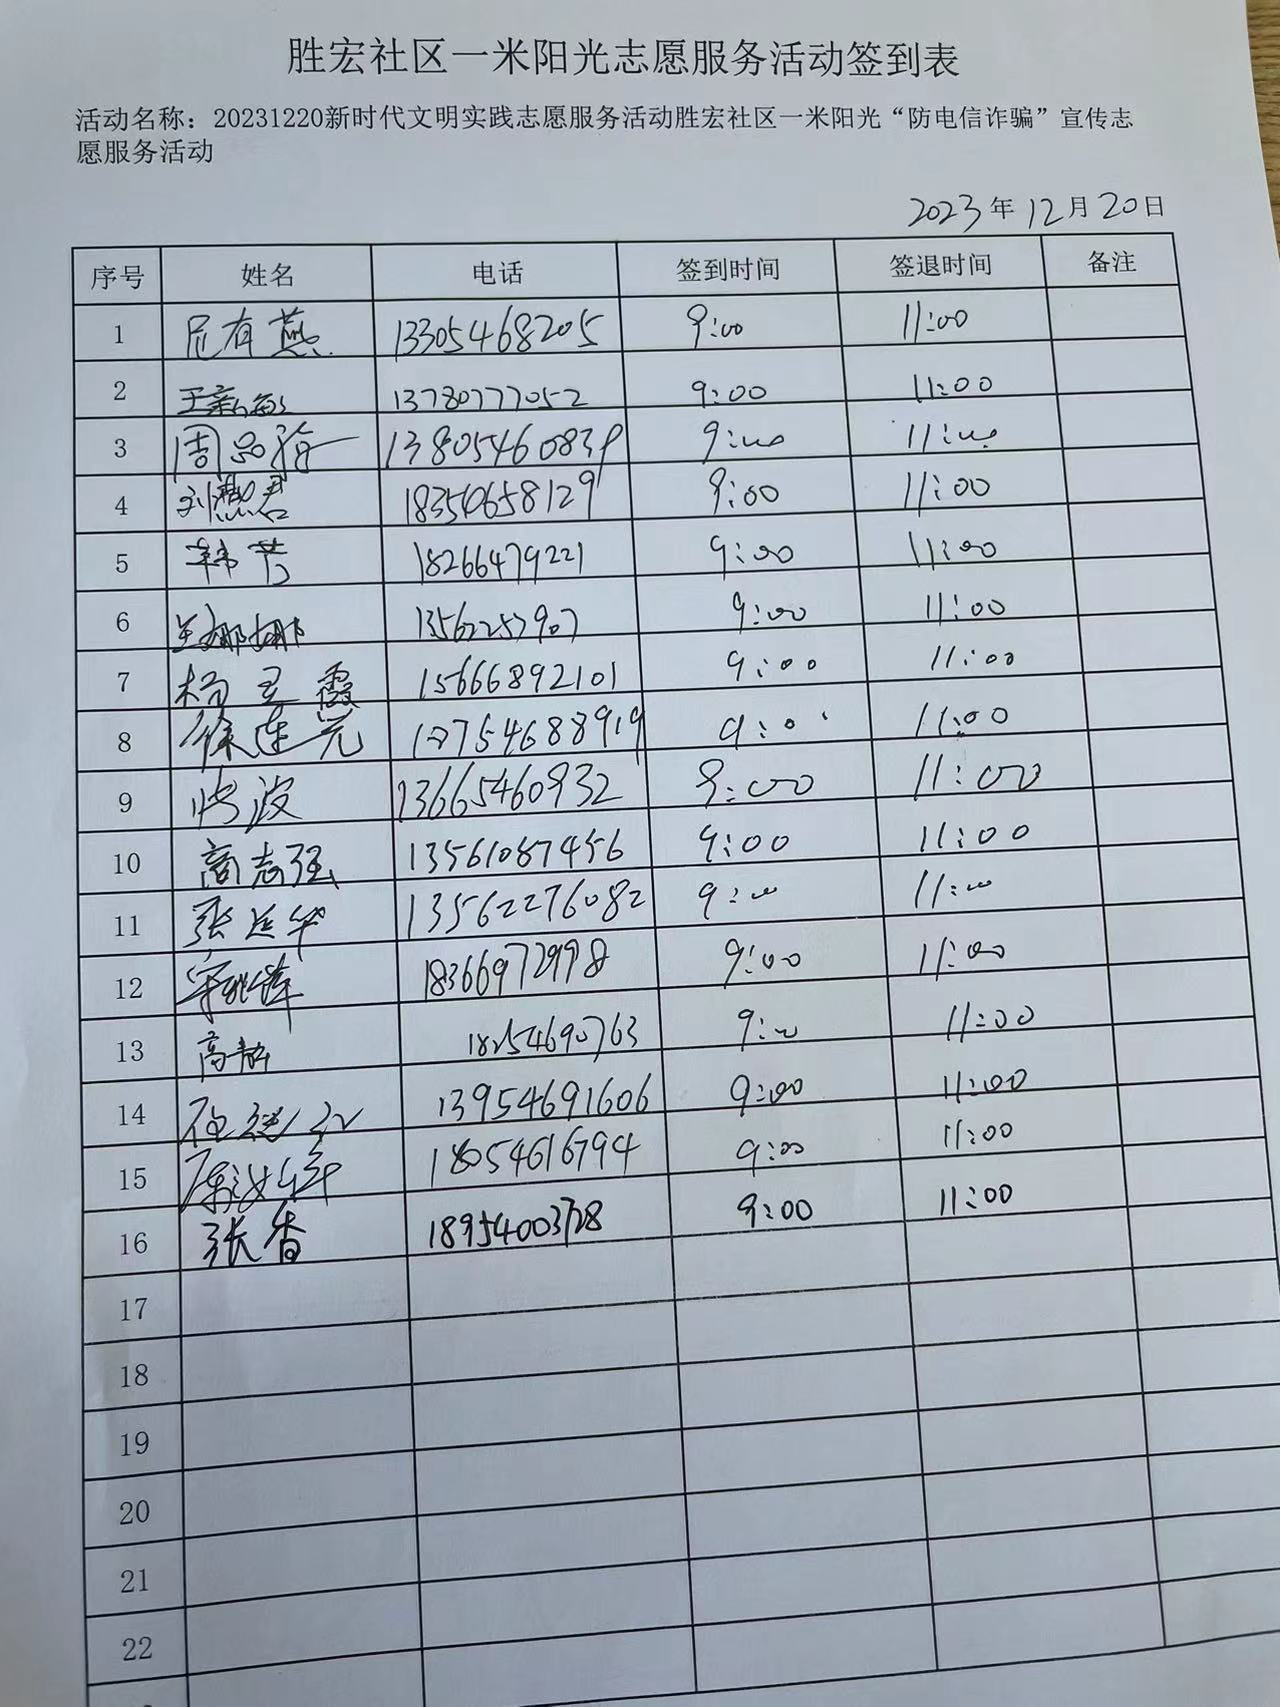 胜宏社区一米阳光志愿服务活动签到表
活动名称：20231220新时代文明实践志愿服务活动胜宏社区一米阳光“防电信诈骗”宣传志
愿服务活动
2023年12月20日
序号 姓名 电话 签到时间 签退时间 备注
1 尼有燕 13305468205 9:00 11:00
2 王新敏 13780777052 9:00 11:00
3 周品梅 13805460839 9:00 11:00
4 刘慧君 18350658129 9:00 11:00
5 韩芳 18266479221 9:00 11:00
6 王娜娜 13562257907 9:00 11:00
7 杨卫霞 15666892101 9:00 11:00
8 徐连元 18754688919 9:0 11:00
9 波 13665460932 9:00 11:00
10 商志强 13561087456 9:00 11:00
11 张廷华 13562276082 9:00 11:00
12 18366972998 9:00 11:00
13 高 18254690763 9:00 11:00
14 13954691606 9:00 11:00
15 18054616794 9:00 11:00
16 张香 18954003728 9:00 11:00
17
18
19
20
21
22